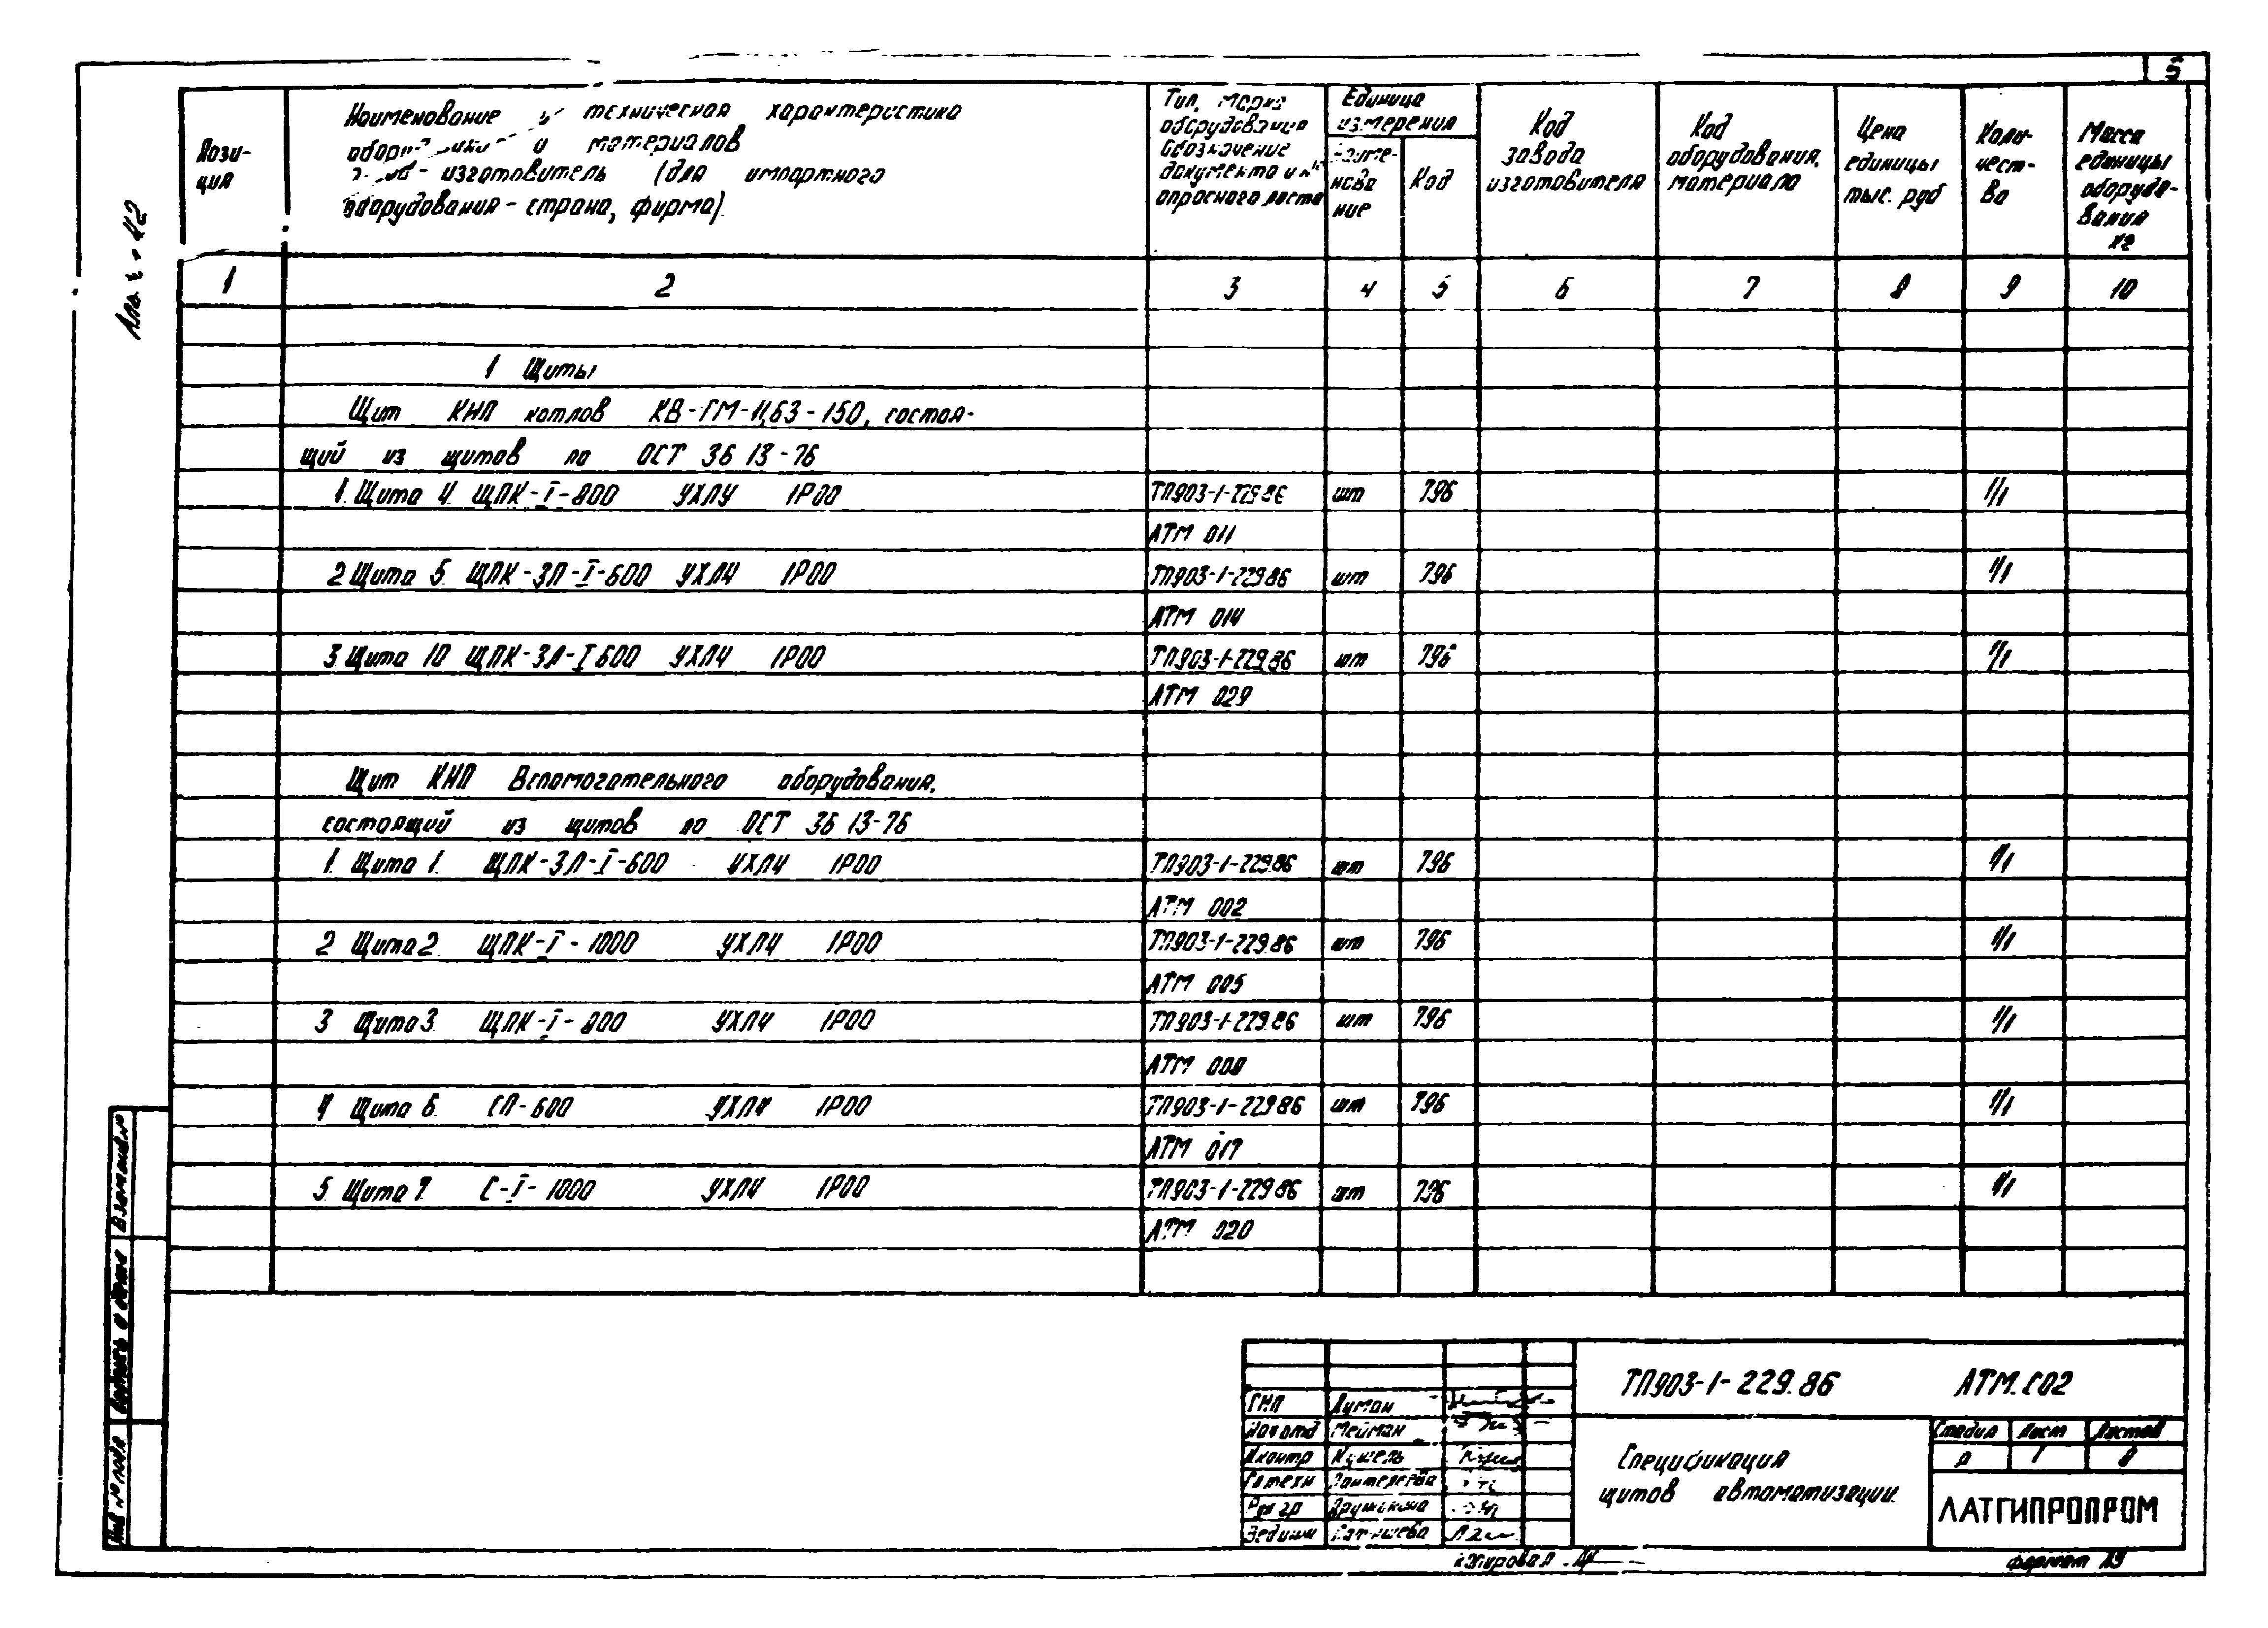 5
Пози-
ция
Наименование и техническая характеристика
оборудования и материалов
завод-изготовитель (для импортного
оборудования-страна, фирма).
Тип, марка
оборудования
Обозначение
документа и №
опросного листа
Единица
измерения
Наиме-
нова
ние
Код
Код
завода
изготовителя
Код
оборудования,
материала
Цена
единицы
тыс. руб
Коли-
чест-
во
Масса
единицы
оборудо-
вания
кг
1 2 3 4 5 6 7 8 9 10
1 Щиты
Щит КИП котлов КВ-ГМ-11,63-150, состоя-
щий из щитов по ОСТ 36 13-76
1. Щита 4. ЩПК-I-800 УХЛ4 IP00 ТП903-1-229.86 шт 796 1/1
АТМ 011
2 Щита 5. ЩПК-ЗЛ-I-600 УХЛ4 IP00 ТП903-1-229.86 шт 796 1/1
АТМ 014
3 Щита 10 ЩПК-ЗЛ-I 600 УХЛ4 IP00 ТП903-1-229.86 шт 796 1/1
АТМ 029
Щит КИП Вспомогательного оборудования,
состоящий из щитов по ОСТ 36 13-76
1. Щита 1. ЩПК-ЗЛ-I-600 УХЛ4 IP00 ТП903-1-229.86 шт 796 1/1
АТМ 002
2 Щита 2. ЩПК-I-1000 УХЛ4 IP00 ТП903-1-229.86 шт 796 1/1
АТМ 005
3 Щита 3. ЩПК-I-800 УХЛ4 IP00 ТП903-1-229.86 шт 796 1/1
АТМ 008
4 Щита 6. СП-600 УХЛ4 IP00 ТП903-1-229.86 шт 796 1/1
АТМ 017
5. Щита 7. С-I-1000 УХЛ4 IP00 ТП903-1-229.86 шт 796 1/1
АТМ 020
Взам инв №
Подпись и дата
Инв № подл
ТП903-1-229.86 АТМ.С02
ГИП
Нач отд Мейман
Н контр
Гл техн Пантелеева
Рук гр
Вед инж Латышева
Спецификация
щитов автоматизации.
Стадия Лист Листов
Р 1 8
ЛАТГИПРОПРОМ
Копировал
формат А3